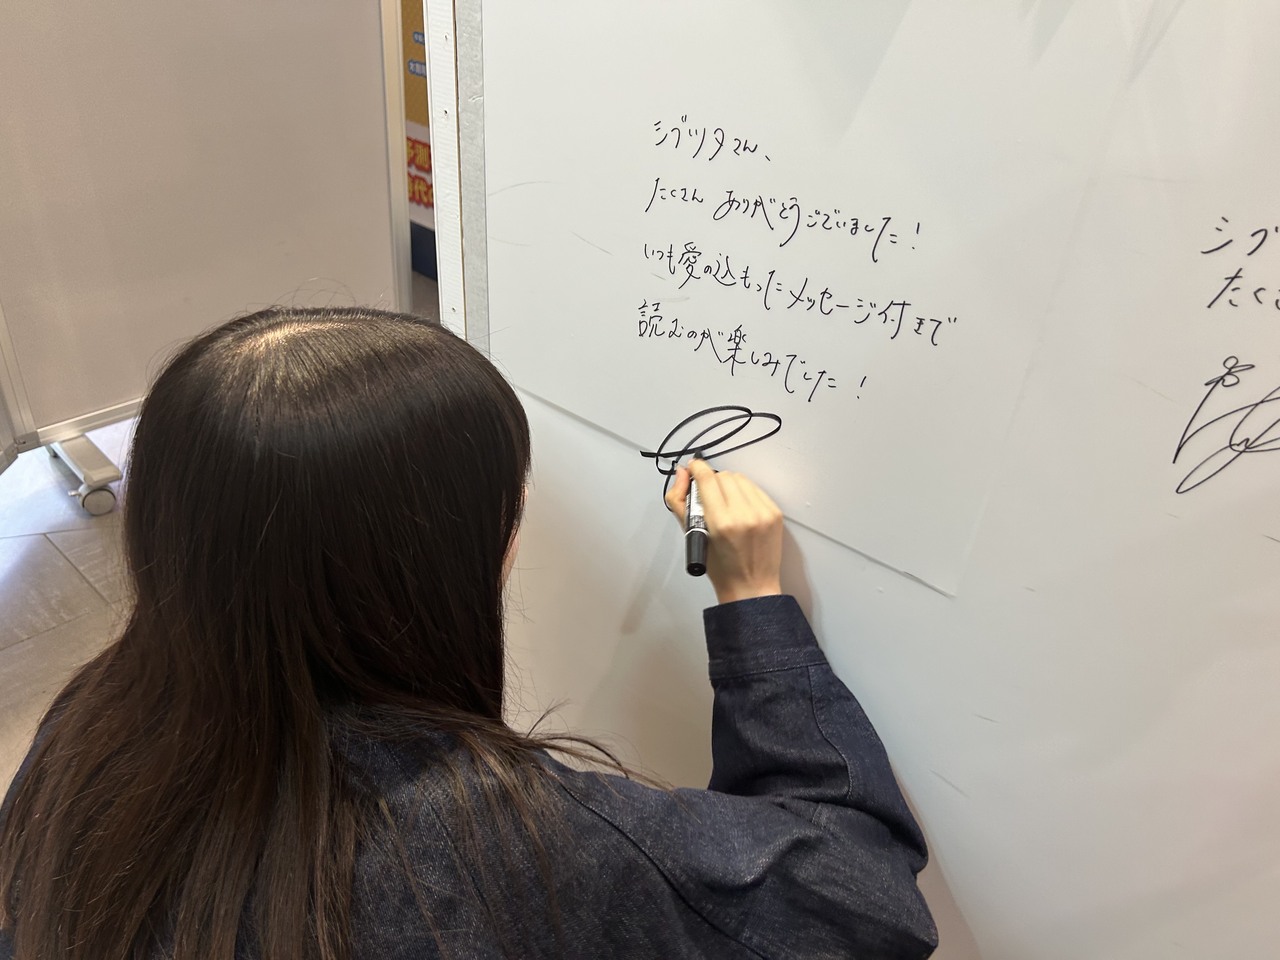 シブツタさん、
たくさん ありがとうございました!
いつも愛の込もったメッセージ付きで
読むのが楽しみでした!
シブ
たく